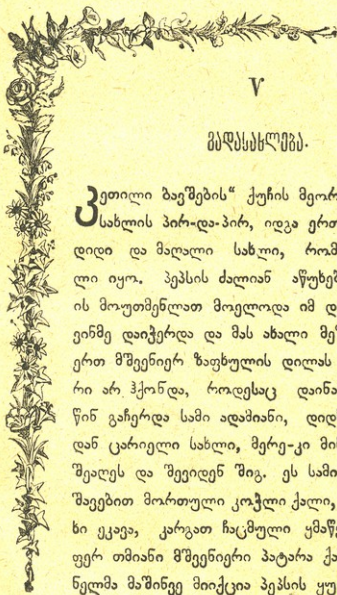 V
გადასახლება.
კეთილი ბავშების“ ქუჩის მეორ
სახლის პირ-და-პირ, იდგა ერთ
დიდი და მაღალი სახლი, რომ
ლი იყო. პეპსის ძალიან აწუხებ
ის მოუთმენლათ მოელოდა იმ დ
ვინმე დაიჭერდა და მას ახალი მეზ
ერთ მშვენიერ ზაფხულის დილას
რი არ ჰქონდა, როდესაც დაინა
წინ გაჩერდა სამი ადამიანი, დიდ
დან ცარიელი სახლი, მერე-კი მი
შეაღეს და შევიდენ შიგ. ეს სამი
შავებით მორთული კოჭლი ქალი,
ხი ეკავა, კარგათ ჩაცმული ყმაწვ
ფერ თმიანი მშვენიერი პატარა ქა
ნელმა მაშინვე მიიქცია პეპსის ყუ